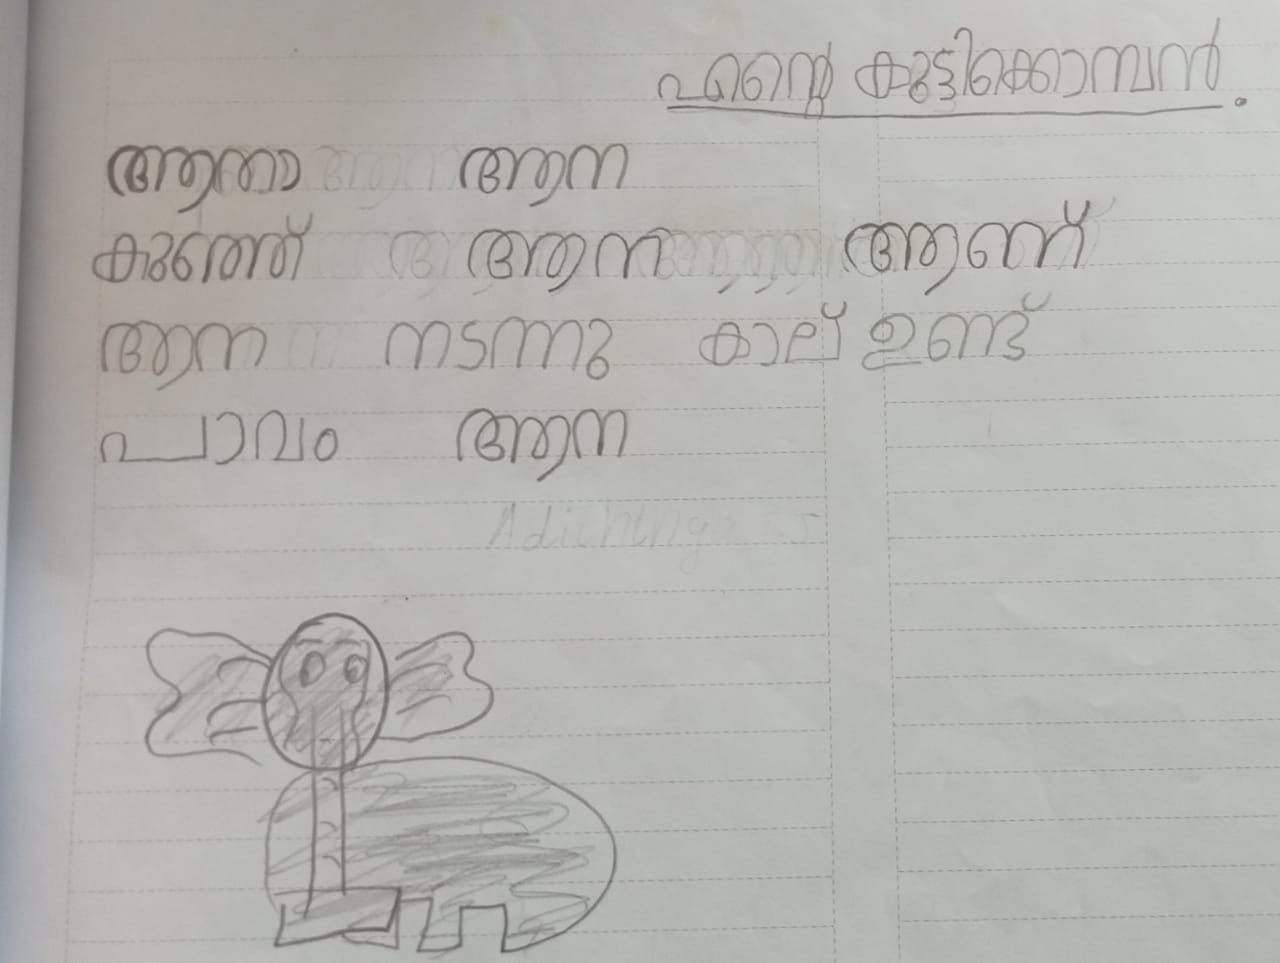 എന്റെ കുട്ടിക്കൊമ്പൻ.
ആനാ ആന
കുഞ്ഞ് ആന ആണ്
ആന നടന്നു കാല് ഉണ്ട്
പാവം ആന